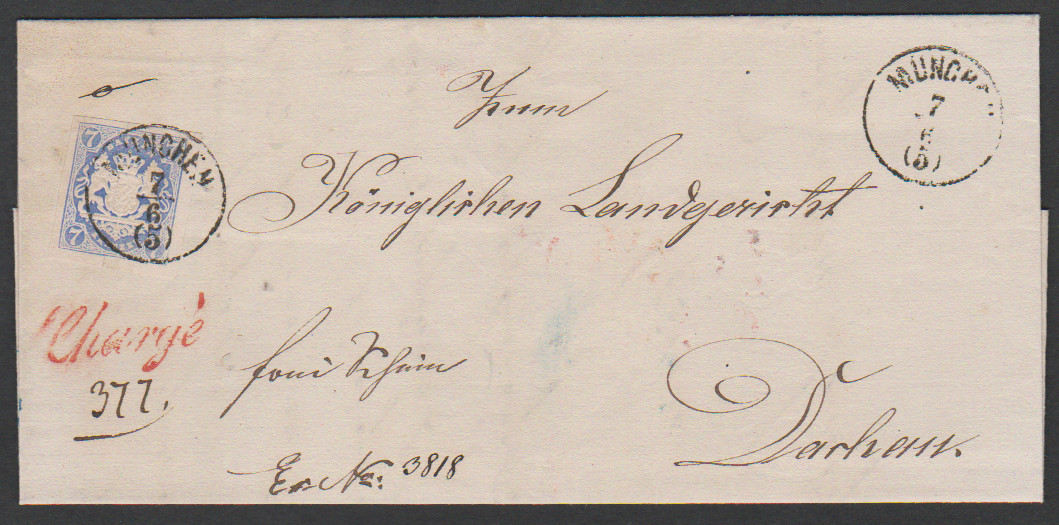 MÜNCHEN
7
6
(5)
7
7
7
MÜNCHEN
7
6
(5)
Zum
Königlichen Landgericht
Chargé
377.
Schein
Dachau
Ex. No: 3818